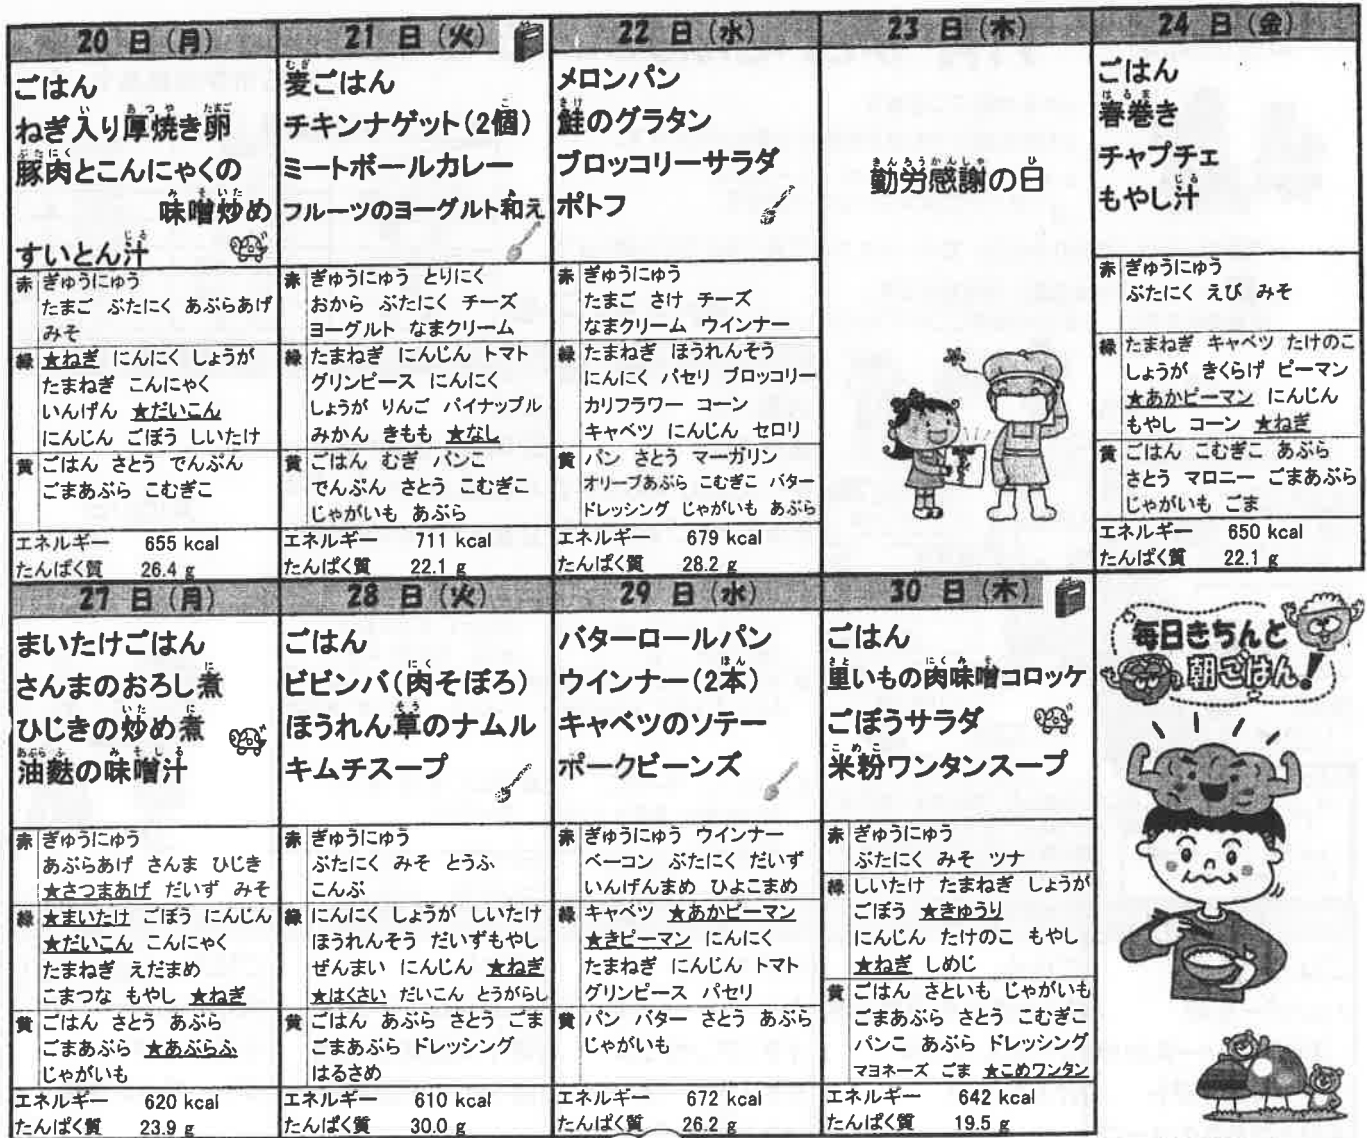 20 日(月)
ごはん
ねぎ入り厚焼き卵
豚肉とこんにゃくの
味噌炒め
すいとん汁
赤 ぎゅうにゅう
たまご ぶたにく あぶらあげ
みそ
緑 ★ねぎ にんにく しょうが
たまねぎ こんにゃく
いんげん ★だいこん
にんじん ごぼう しいたけ
黄 ごはん さとう でんぷん
ごまあぶら こむぎこ
エネルギー 655 kcal
たんぱく質 26.4 g
21 日(火)
麦ごはん
チキンナゲット(2個)
ミートボールカレー
フルーツのヨーグルト和え
赤 ぎゅうにゅう とりにく
おから ぶたにく チーズ
ヨーグルト なまクリーム
緑 たまねぎ にんじん トマト
グリンピース にんにく
しょうが りんご パイナップル
みかん きもも ★なし
黄 ごはん むぎ パンこ
でんぷん さとう こむぎこ
じゃがいも あぶら
エネルギー 711 kcal
たんぱく質 22.1 g
22 日(水)
メロンパン
鮭のグラタン
ブロッコリーサラダ
ポトフ
赤 ぎゅうにゅう
たまご さけ チーズ
なまクリーム ウインナー
緑 たまねぎ ほうれんそう
にんにく パセリ ブロッコリー
カリフラワー コーン
キャベツ にんじん セロリ
黄 パン さとう マーガリン
オリーブあぶら こむぎこ バター
ドレッシング じゃがいも あぶら
エネルギー 679 kcal
たんぱく質 28.2 g
23 日(木)
勤労感謝の日
24 日(金)
ごはん
春巻き
チャプチェ
もやし汁
赤 ぎゅうにゅう
ぶたにく えび みそ
緑 たまねぎ キャベツ たけのこ
しょうが きくらげ ピーマン
★あかピーマン にんじん
もやし コーン ★ねぎ
黄 ごはん こむぎこ あぶら
さとう マロニー ごまあぶら
じゃがいも ごま
エネルギー 650 kcal
たんぱく質 22.1 g
27 日(月)
まいたけごはん
さんまのおろし煮
ひじきの炒め煮
油麩の味噌汁
赤 ぎゅうにゅう
あぶらあげ さんま ひじき
★さつまあげ だいず みそ
緑 ★まいたけ ごぼう にんじん
★だいこん こんにゃく
たまねぎ えだまめ
こまつな もやし ★ねぎ
黄 ごはん さとう あぶら
ごまあぶら ★あぶらふ
じゃがいも
エネルギー 620 kcal
たんぱく質 23.9 g
28 日(火)
ごはん
ビビンバ(肉そぼろ)
ほうれん草のナムル
キムチスープ
赤 ぎゅうにゅう
ぶたにく みそ とうふ
こんぶ
緑 にんにく しょうが しいたけ
ほうれんそう だいずもやし
ぜんまい にんじん ★ねぎ
★はくさい だいこん とうがらし
黄 ごはん あぶら さとう ごま
ごまあぶら ドレッシング
はるさめ
エネルギー 610 kcal
たんぱく質 30.0 g
29 日(水)
バターロールパン
ウインナー(2本)
キャベツのソテー
ポークビーンズ
赤 ぎゅうにゅう ウインナー
ベーコン ぶたにく だいず
いんげんまめ ひよこまめ
緑 キャベツ ★あかピーマン
★きピーマン にんにく
たまねぎ にんじん トマト
グリンピース パセリ
黄 パン バター さとう あぶら
じゃがいも
エネルギー 672 kcal
たんぱく質 26.2 g
30 日(木)
ごはん
里いもの肉味噌コロッケ
ごぼうサラダ
米粉ワンタンスープ
赤 ぎゅうにゅう
ぶたにく みそ ツナ
緑 しいたけ たまねぎ しょうが
ごぼう ★きゅうり
にんじん たけのこ もやし
★ねぎ しめじ
黄 ごはん さといも じゃがいも
ごまあぶら さとう こむぎこ
パンこ あぶら ドレッシング
マヨネーズ ごま ★こめワンタン
エネルギー 642 kcal
たんぱく質 19.5 g
毎日きちんと
朝ごはん!